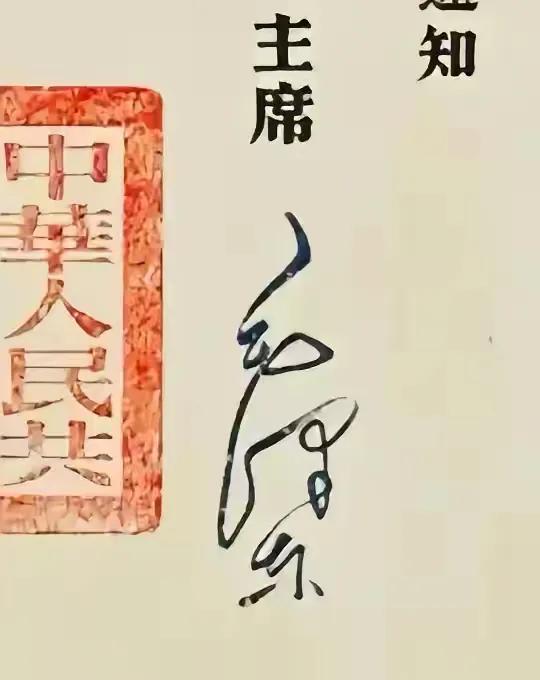 通知
主席
毛泽东
中華人民共